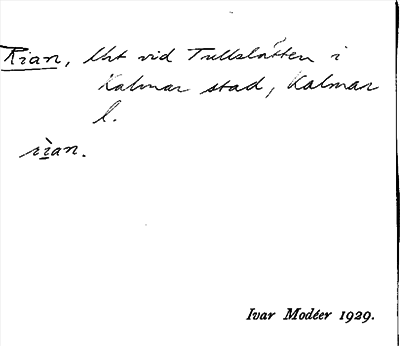 Rian, Uht vid Tullslätten i
Kalmar stad, Kalmar
l.
rìan.
Ivar Modéer 1929.